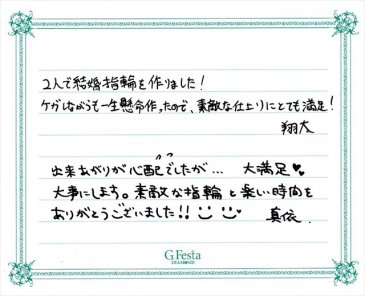 2人で結婚指輪を作りました!
ケガしながらも一生懸命作ったので、素敵な仕上りにとても満足!
翔太
出来あがりが心配でしたが… 大満足♥
大事にします。素敵な指輪と楽しい時間を
ありがとうございました!!
真依
G.Festa
DIAMOND